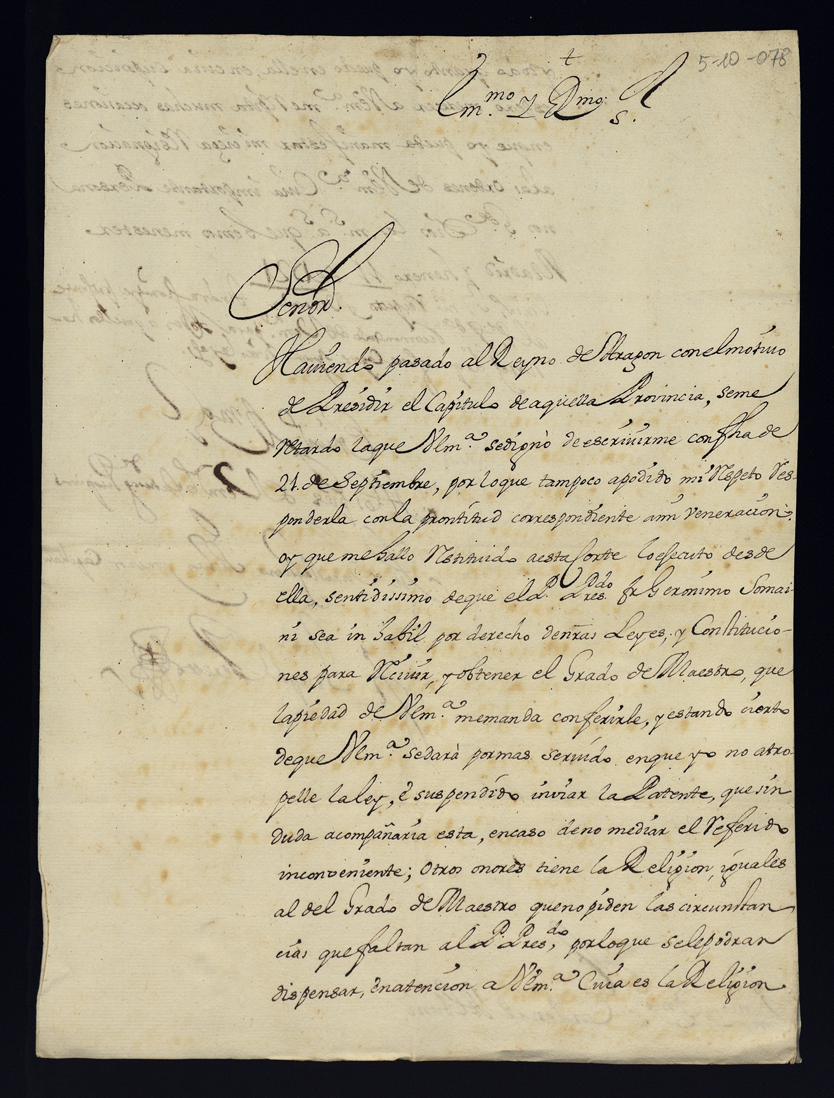 5-10-078
†
Em.mo y Rmo. S.r
Señor.
Haviendo pasado al Reyno de Aragon con el motivo
de Presidir el Capitulo de aquella Provincia, se me
retardo la que V Em.a se dignò de escrivirme con fha de
21. de Septiembre, por lo que tampoco a podido mi respeto res-
ponderla con la prontitud correspondiente a mi veneracion.
oy que me hallo restituido a esta Corte lo esecuto desde
ella, sentidissimo de que el P. Pres.ddo fr Geronimo Somai-
ni sea inhabil por derecho de nras Leyes, y Constitucio-
nes para recivir, y obtener el Grado de Maestro, que
la piedad de V Em.a me manda conferirle, y estando cierto
de que V Em.a se darà por mas servido en que yo no atro
pelle la ley, è suspendido inviar la Patente, que sin
duda acompañaria esta, en caso de no mediar el referido
inconveniente; Otros onores tiene la Religion, iguales
al del Grado de Maestro que no piden las circunstan
cias que faltan al P. Pres.do, por lo que se le podran
dispensar, en atencion a V Em.a Cuia es la Religion